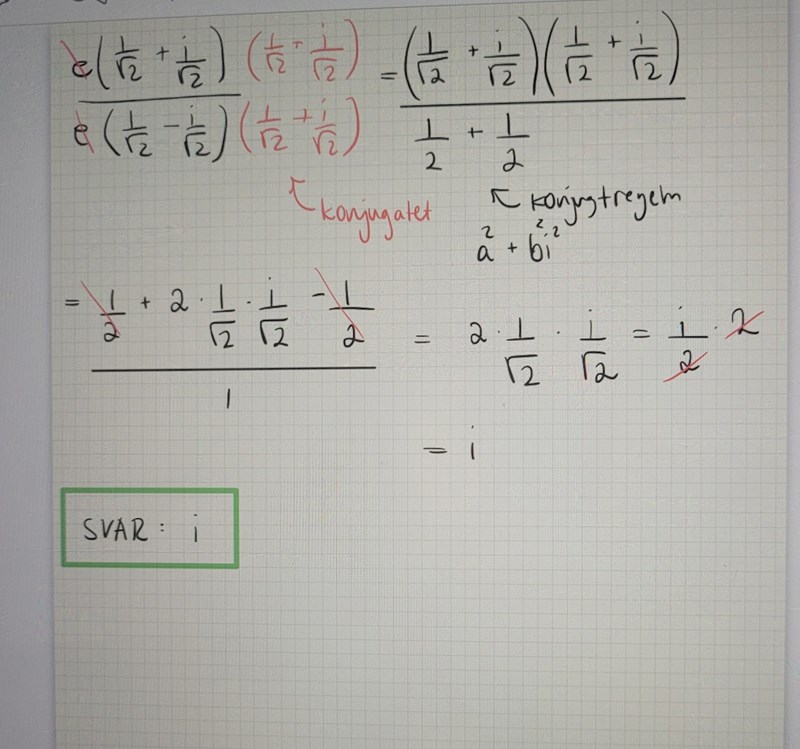 e(1/√2 + i/√2) (1/√2 + i/√2) / e(1/√2 - i/√2) (1/√2 + i/√2) = (1/√2 + i/√2)(1/√2 + i/√2) / 1/2 + 1/2
konjugatet
konjugtregeln
a² + b²i²
= 1/2 + 2 · 1/√2 · i/√2 - 1/2 / 1 = 2 · 1/√2 · i/√2 = i/2 · 2
= i
SVAR: i